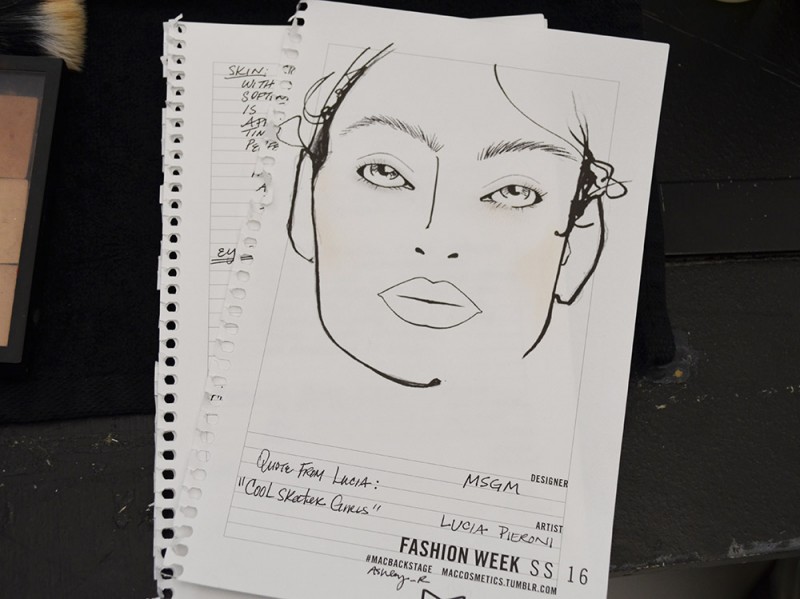 SKIN:
WITH
SOFT
IS
TIN
EY
QUOTE FROM LUCIA:
"COOL SKATER GIRLS"
MSGM DESIGNER
LUCIA PIERONI ARTIST
FASHION WEEK SS 16
#MACBACKSTAGE MACCOSMETICS.TUMBLR.COM
Ashley_R